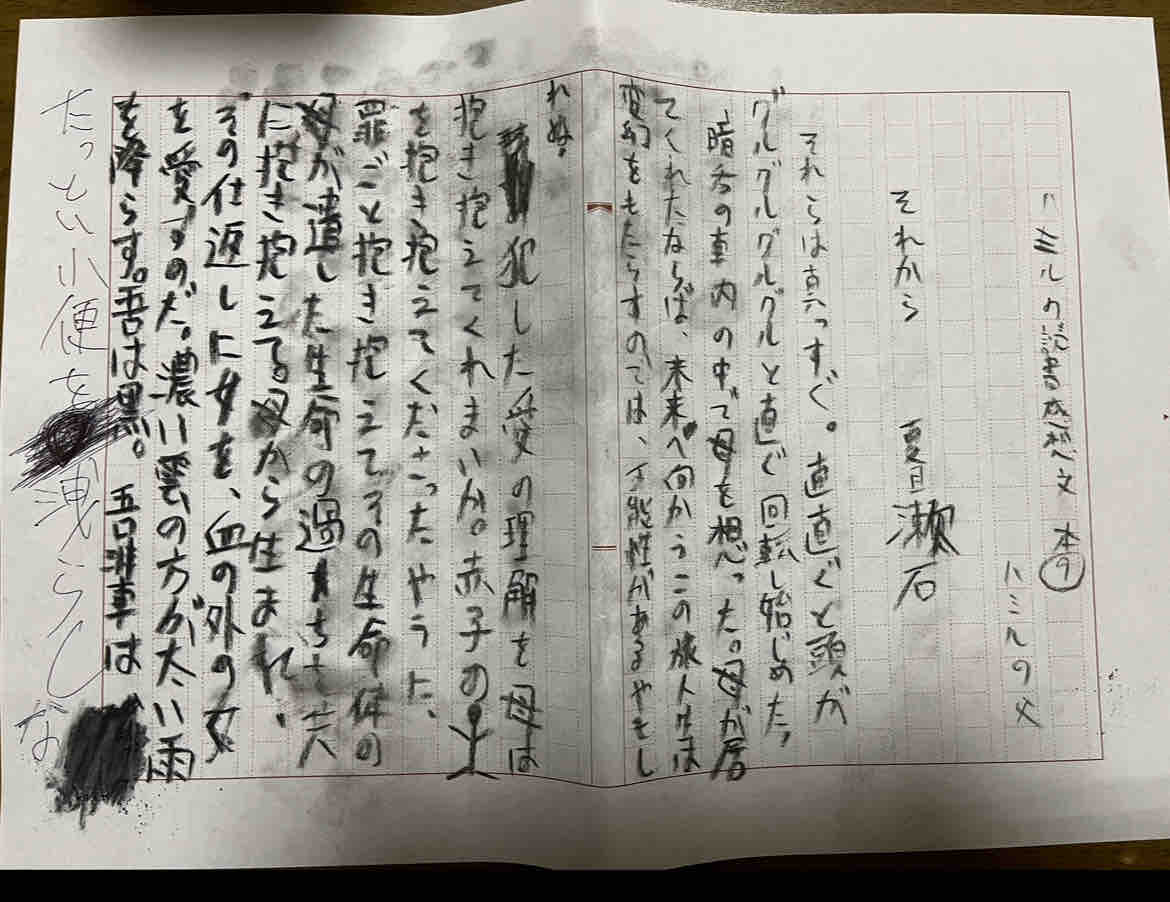 ハミルの読書感想文 本⑨
ハミルの父
それから 夏目瀬石
それらは真っすぐ。直直ぐと頭が
グルグルグルグルと直ぐ回転し始じめた。
暗呑の車内の中で母を想った。母が居
てくれたならば、未来へ向かうこの旅人生は
変幻をもたらすのでは、可能性があるやもし
れぬ。
犯した愛の理解を母は
抱き抱えてくれまいか。赤子の
を抱き抱えてくださったやうに、
罪ごと抱き抱えてその生命体の
母が遺した生命の過ちを共
に抱き抱えてる。母から生まれ、
その仕返しに女を、血の外の女
を愛すのだ。濃い雲の方が太い雨
を降らす。吾は黒。吾誰車は
たっとい小便を洩らしな